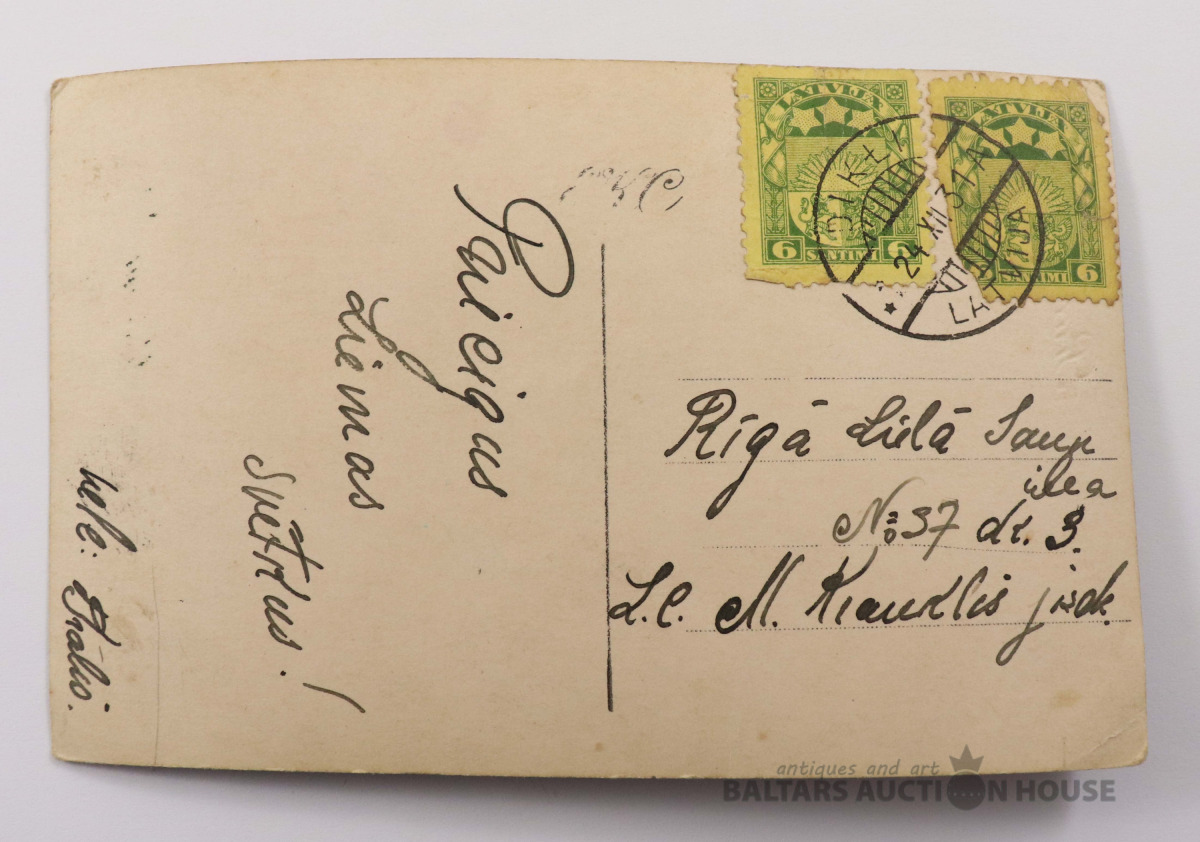 Paicigus
Ziemas
Svētkus!
LATVIJA
6 SANTIMI 6
LATVIJA
SANTIMI 6
24 XII 31 A
LATVIJA
Rīgā Lielā
iela
№ 37 dz. 3.
L.C. M. jzdk.
antiques and art
BALTARS AUCTION HOUSE